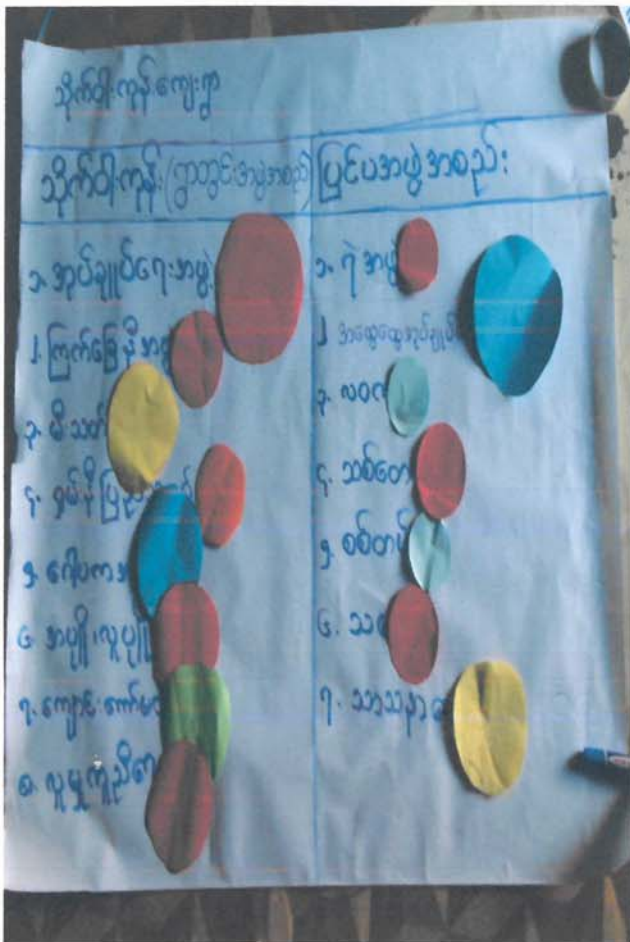 သိုက်ဝါးကုန်းကျေးရွာ
သိုက်ဝါးကုန်း (ရွာတွင်းအဖွဲ့အစည်း)
၁. အုပ်ချုပ်ရေးအဖွဲ့
၂. ကြက်ခြေနီ
၃. မီးသတ်
၄. ရှမ်းနီ
၅. ဂေါပက
၆. အပျို၊ လူပျို
၇. ကျောင်းကော်မ
၈. လူမှုကူညီရေး
ပြင်ပအဖွဲ့အစည်း
၁. ရဲအဖွဲ့
၂. အထွေထွေအုပ်ချုပ်
၃. လဝက
၄. သစ်တော
၅. စစ်တပ်
၆.
၇. သာသနာ